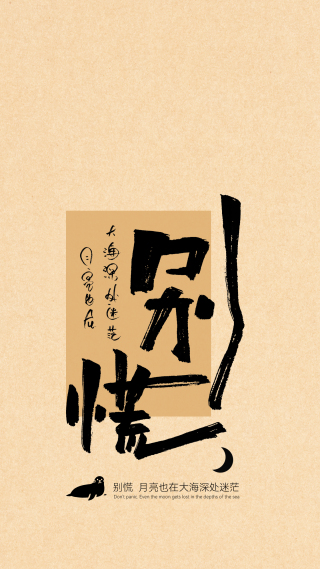 别慌
月亮也在
大海深处迷茫
别慌 月亮也在大海深处迷茫
Don't panic Even the moon gets lost in the depths of the sea